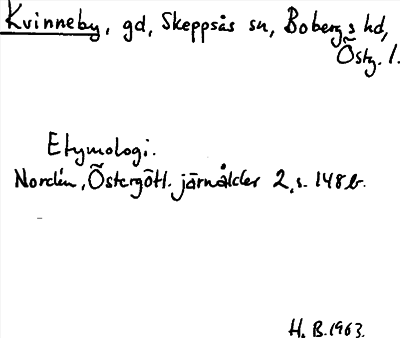 Kvinneby, gd, Skeppsås sn, Bobergs hd,
Östg. l.
Etymologi.
Nordén, Östergötl. järnålder 2, s. 148 b.
H. B. 1963.